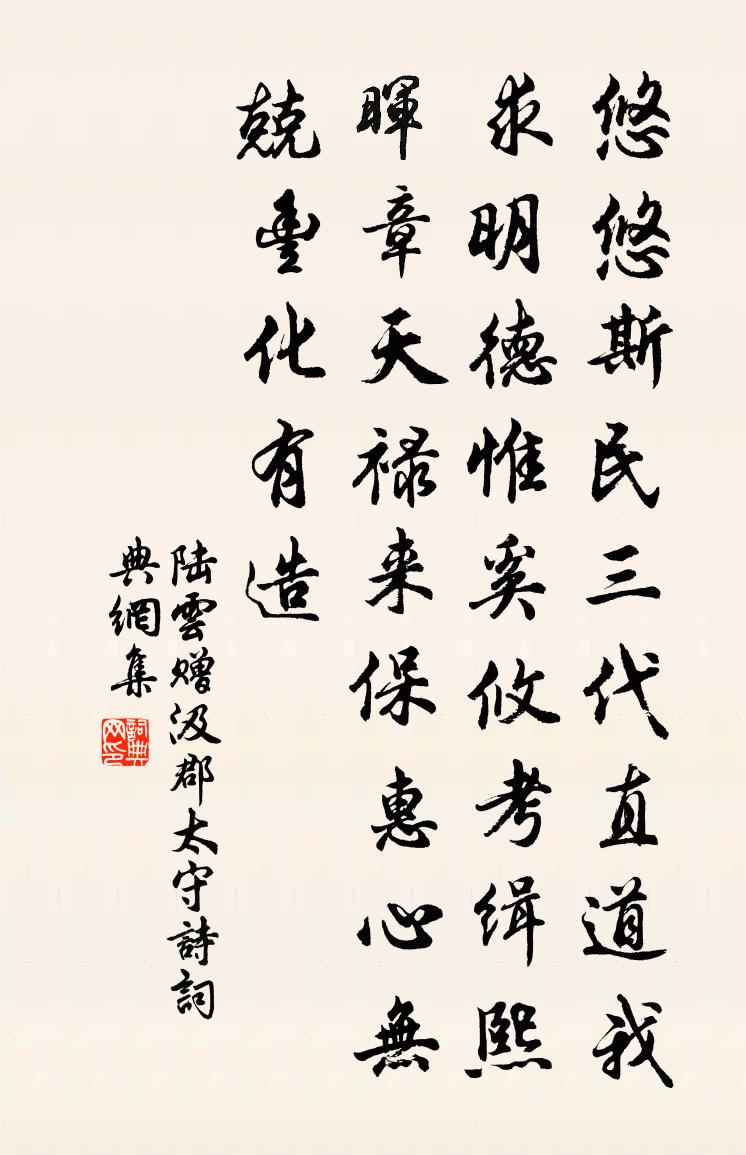 悠悠斯民三代直道我
求明德惟奚攸考缉熙
暉章天禄来保惠心無
兢豊化有造
陆雲赠汲郡太守詩詞
典網集
詞典網印